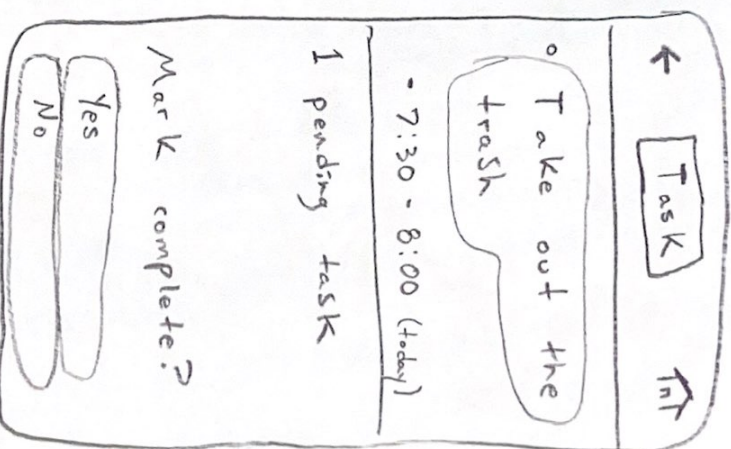 Task
Take out the
trash
- 7:30 - 8:00 (today)
1 pending task
Mark complete?
Yes
No